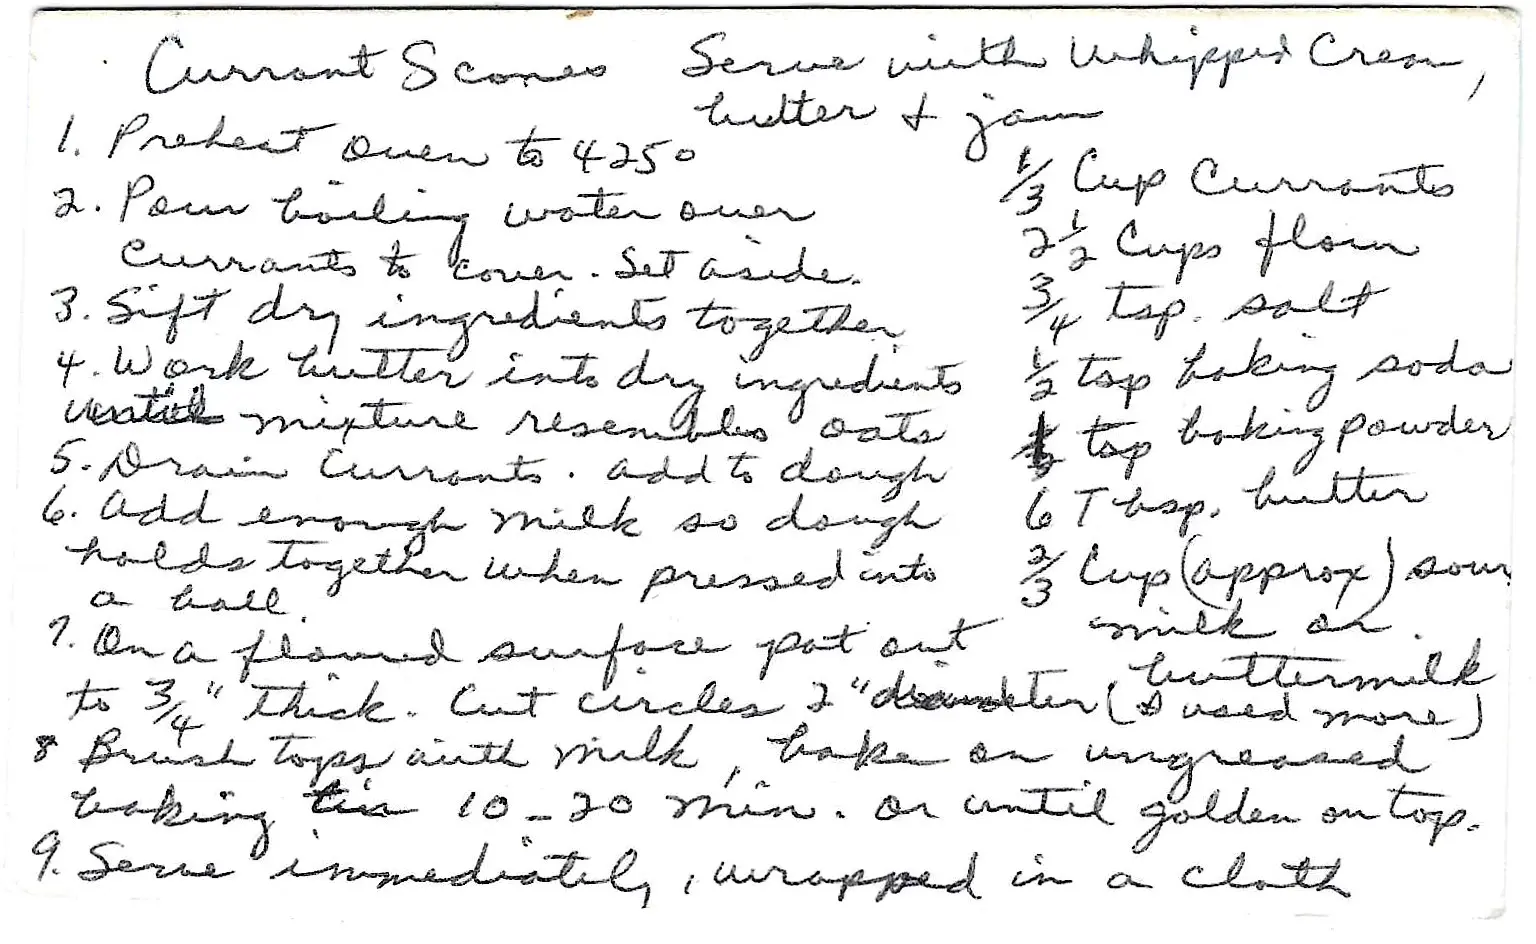 Currant Scones Serve with Whipped Cream,
butter & jam
1. Preheat oven to 425°
2. Pour boiling water over
currants to cover. Set aside.
3. Sift dry ingredients together
4. Work butter into dry ingredients
until mixture resembles oats
5. Drain Currants. add to dough
6. Add enough milk so dough
holds together when pressed into
a ball.
7. On a floured surface pat out
to 3/4" thick. Cut circles 2" diameter
8 Brush tops with milk, bake on ungreased
baking tin 10-20 min. or until golden on top.
9. Serve immediately, wrapped in a cloth
1/3 Cup Currants
2 1/2 Cups flour
3/4 tsp. salt
1/2 tsp baking soda
tsp baking powder
6 Tbsp. butter
2/3 Cup (approx) sour
milk or
buttermilk
(I used more)